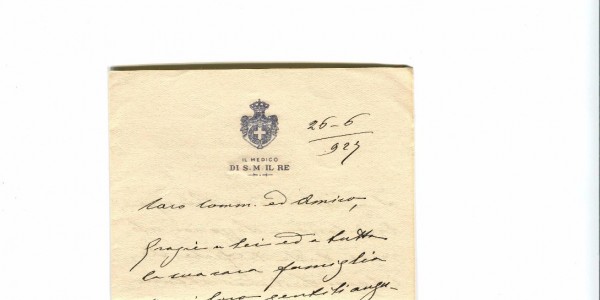 26-6
927
IL MEDICO
DI S. M. IL RE
Caro Comm. ed Amico,
Grazie a lei ed a tutta
la sua cara famiglia
loro gentili augu-